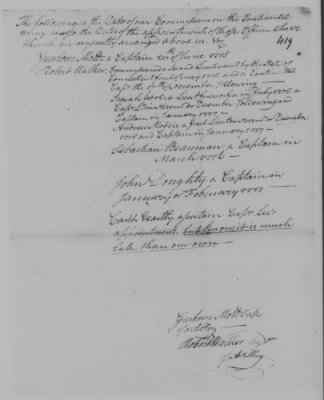 The following is the Dates of our Commissions in the Continental
Army & also the Dates of the appointments of those Officers who we
think are unjustly arranged above us. Viz.
419
Gershom Mott a Captain of June 1776
Robert Walker, Commissioned a Second Lieutenant by the State of
Connecticut first of May 1775 and a Continental
Capt. the of November following
Isaiah Wool a Lieut in July 1775 a
Capt. Lieutenant or December following and
Captain in January 1777
Andrew Moodie a first Lieutenant in December
1775 and Captain in January 1777
Sebastian Beauman a Captain in
March 1776
John Doughty a Captain in
January or February 1777
Cant Exactly ascertain Capt. Lee's
appointment but know it is much
Late than our own
Gershom Mott Cap
of artillery
Robert Walker Capt
of Artillery